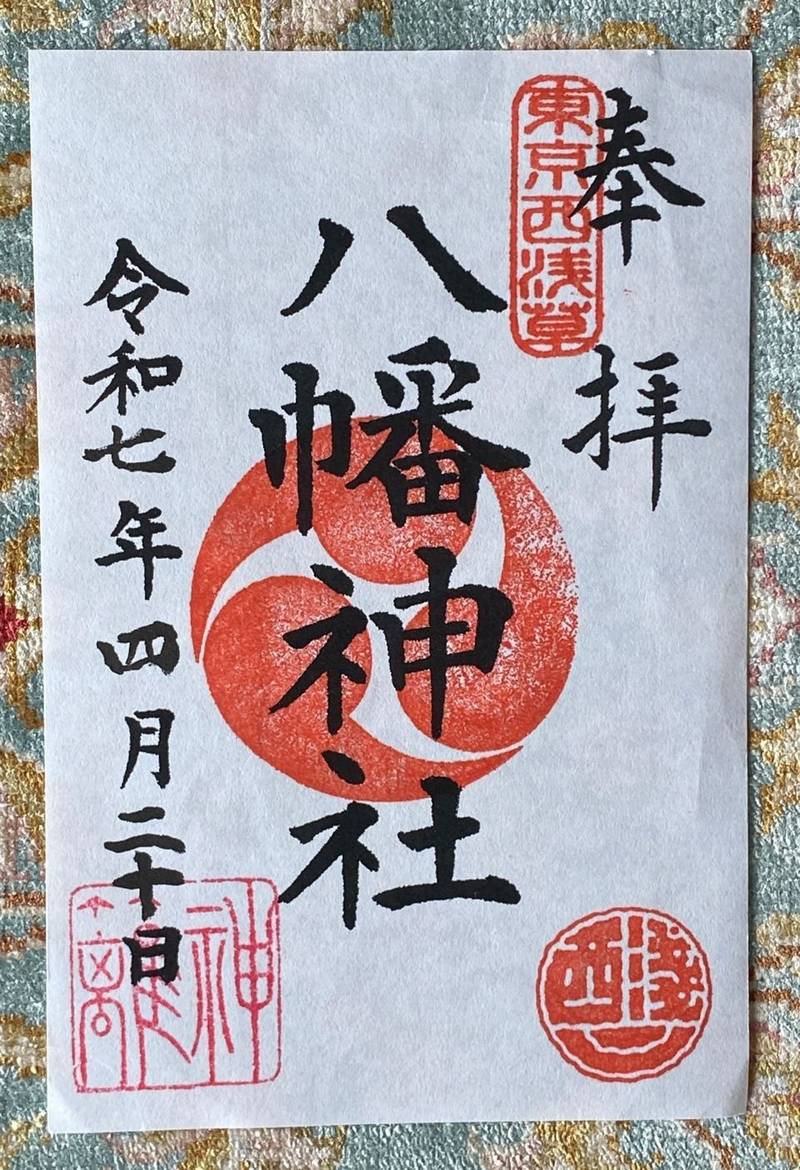 奉拝
東京西浅草
八幡神社
令和七年四月二十日